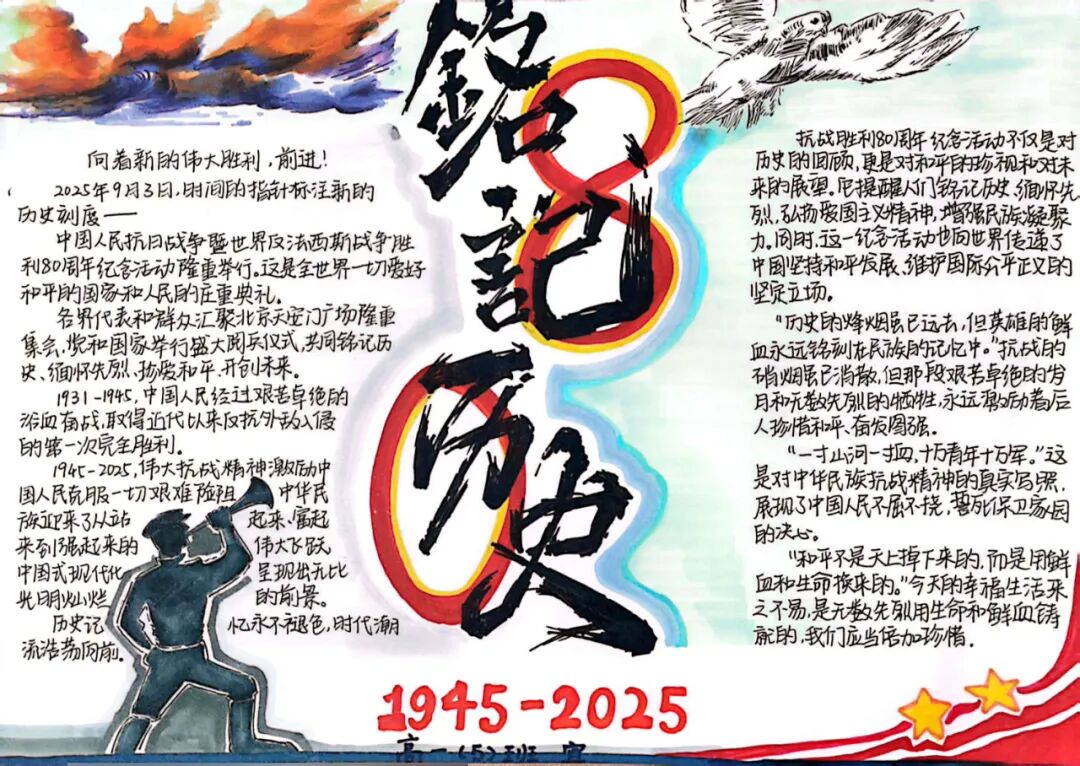 銘記历史
80
向着新的伟大胜利,前进!
2025年9月3日,时间的指针标注新的
历史刻度——
中国人民抗日战争暨世界反法西斯战争胜
利80周年纪念活动隆重举行。这是全世界一切爱好
和平的国家和人民的庄重典礼。
各界代表和群众汇聚北京天安门广场隆重
集会,党和国家举行盛大阅兵仪式,共同铭记历
史、缅怀先烈、珍爱和平、开创未来。
1931-1945,中国人民经过艰苦卓绝的
浴血奋战,取得近代以来反抗外敌入侵
的第一次完全胜利。
1945-2025,伟大抗战精神激励中
国人民克服一切艰难险阻 中华民
族迎来了从站 起来、富起
来到强起来的 伟大飞跃
中国式现代化 呈现出无比
光明灿烂 的前景。
历史记 忆永不褪色,时代潮
流浩荡向前。
抗战胜利80周年纪念活动不仅是对
历史的回顾,更是对和平的珍视和对未
来的展望。它提醒人们铭记历史,缅怀先
烈,弘扬爱国主义精神,增强民族凝聚
力。同时,这一纪念活动也向世界传递了
中国坚持和平发展、维护国际公平正义的
坚定立场。
“历史的烽烟虽已远去,但英雄的鲜
血永远铭刻在民族的记忆中。”抗战的
硝烟虽已消散,但那段艰苦卓绝的岁
月和无数先烈的牺牲,永远激励着后
人珍惜和平、奋发图强。
“一寸山河一寸血,十万青年十万军。”这
是对中华民族抗战精神的真实写照,
展现了中国人民不屈不挠,誓死保卫家园
的决心。
“和平不是天上掉下来的,而是用鲜
血和生命换来的。”今天的幸福生活来
之不易,是无数先烈用生命和鲜血铸
就的,我们应当倍加珍惜.
1945-2025
高一(5)班